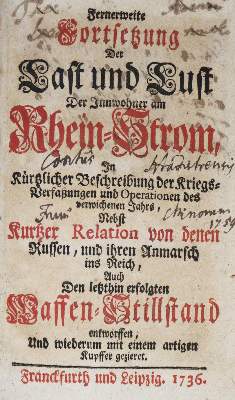 Fernerweite
Fortsetzung
Der
Last und Lust
Der Innwohner am
Rhein-Strom,
In
Kürtzlicher Beschreibung der Kriegs-
Verfaßungen und Operationen des
verwichenen Jahrs,
Nebst
Kurtzer Relation von denen
Russen, und ihren Anmarsch
ins Reich,
Auch
Den letzthin erfolgten
Waffen-Stillstand
entworffen,
Und wiederum mit einem artigen
Kupffer gezieret.
Franckfurth und Leipzig. 1736.